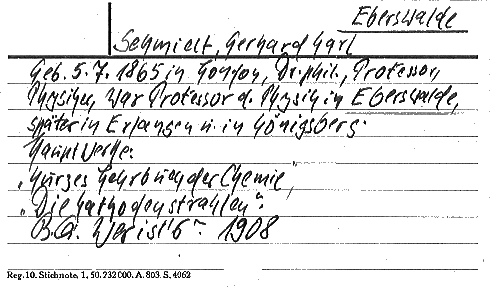 Eberswalde
Schmidt, Gerhard Karl
Geb. 5. 7. 1865 in London, Dr. phil., Professor,
Physiker, War Professor d. Physik in Eberswalde,
später in Erlangen u. in Königsberg.
Hauptwerke:
„Kurzes Lehrbuch der Chemie",
„Die Kathodenstrahlen".
B.Q. Wer ist's". 1908
Reg. 10. Stichnote, 1, 50. 232000. A. 803. S. 4062